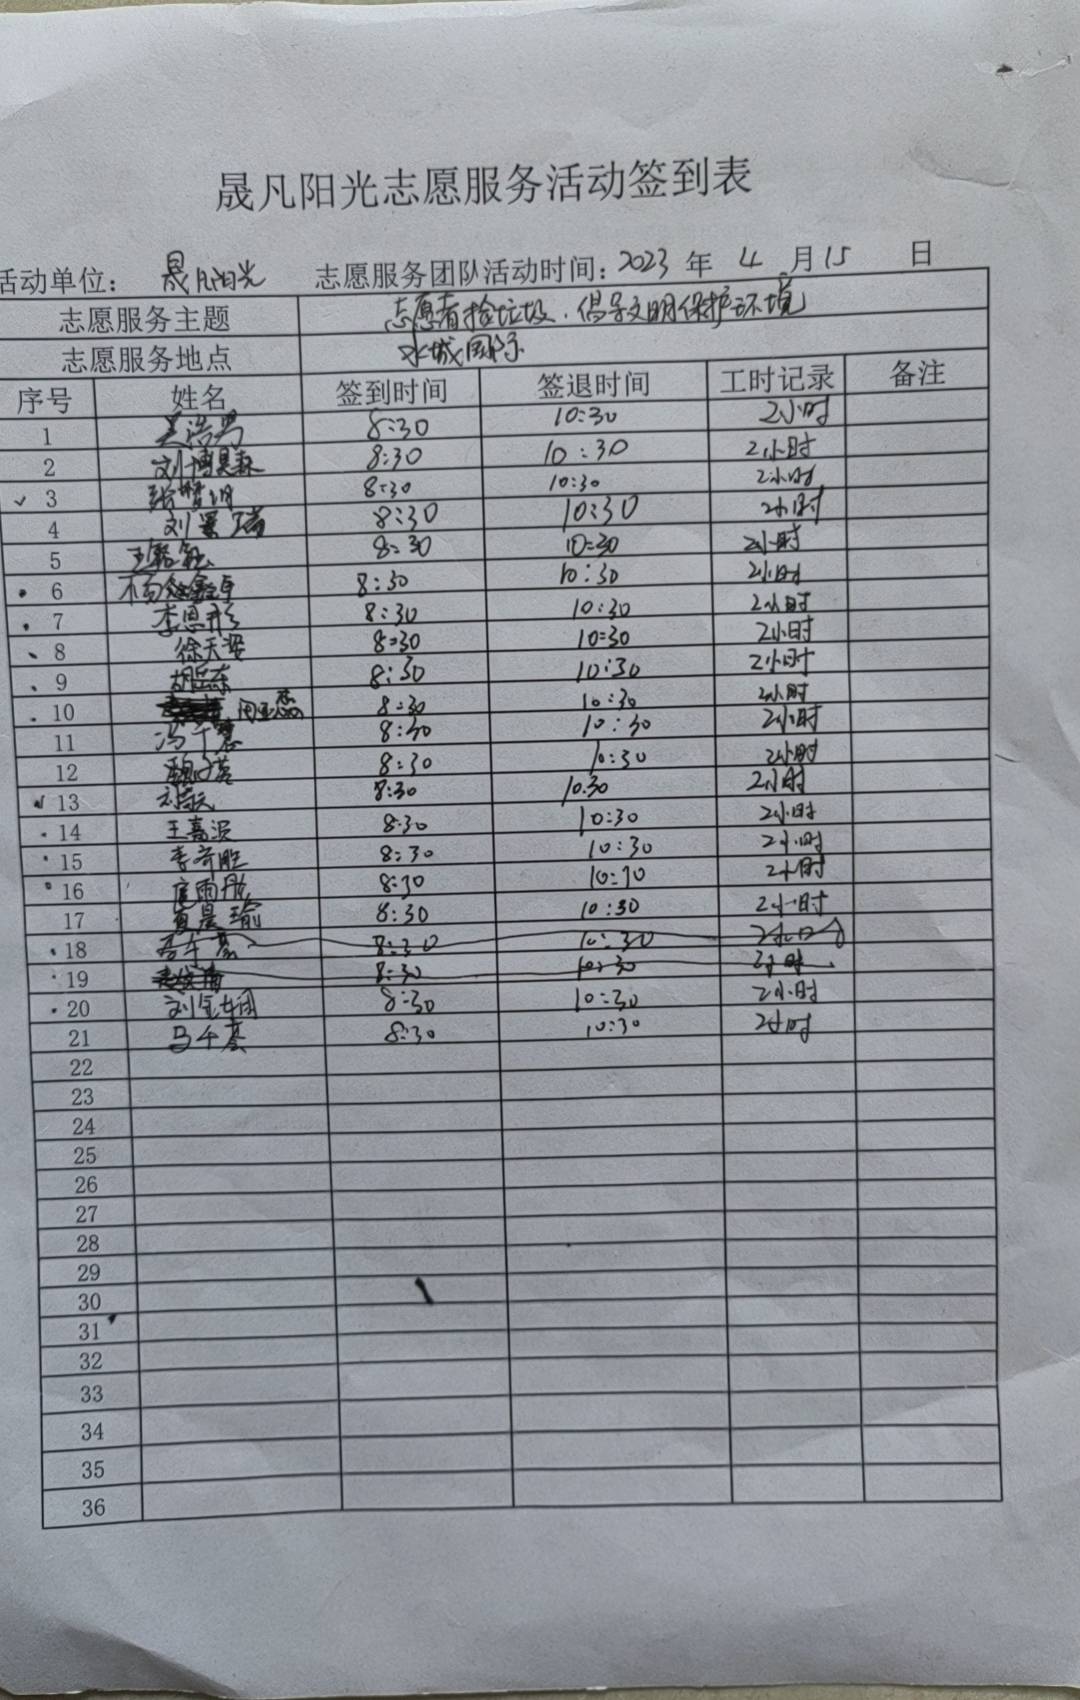 晟凡阳光志愿服务活动签到表
活动单位： 晟凡阳光 志愿服务团队活动时间：2023 年 4 月 15 日
志愿服务主题 志愿者捡垃圾.倡导文明保护环境
志愿服务地点 水城国际
序号 姓名 签到时间 签退时间 工时记录 备注
1 吴浩男 8:30 10:30 2小时
2 刘博昊森 8:30 10:30 2小时
3 8:30 10:30 2小时
4 刘景瑞 8:30 10:30 2小时
5 8:30 10:30 2小时
6 8:30 10:30 2小时
7 李恩彤 8:30 10:30 2小时
8 徐天姿 8:30 10:30 2小时
9 胡岳东 8:30 10:30 2小时
10 8:30 10:30 2小时
11 冯千慧 8:30 10:30 2小时
12 8:30 10:30 2小时
13 8:30 10:30 2小时
14 王嘉滨 8:30 10:30 2小时
15 李奇胜 8:30 10:30 2小时
16 8:30 10:30 2小时
17 夏晨瑜 8:30 10:30 2小时
18 8:30 10:30 2小时
19 8:30 10:30 2小时
20 8:30 10:30 2小时
21 马千荟 8:30 10:30 2小时
22
23
24
25
26
27
28
29
30
31
32
33
34
35
36